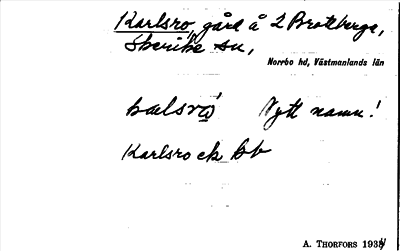 Karlsro, gård å 2 Brottberga,
Skerike sn,
Norrbo hd, Västmanlands län
Nytt namn!
Karlsro ek bb
A. THORFORS 1934